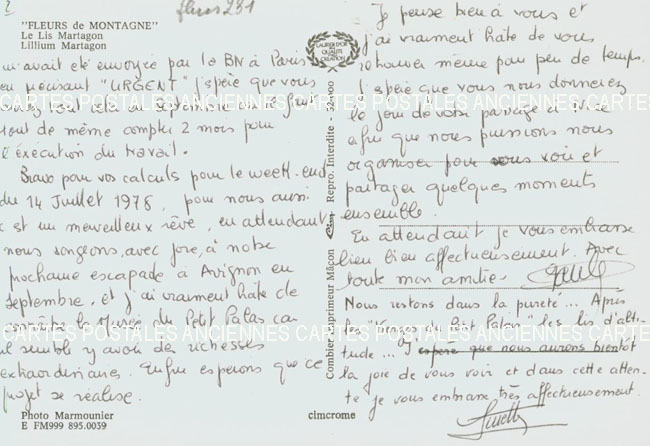 2
fleurs 231
"FLEURS de MONTAGNE"
Le Lis Martagon
Lillium Martagon
m'avait été envoyée par la BN à Paris
en précisant "URGENT" j'espère que vous
aurez tout cela en septembre
tout de même compter 2 mois pour
l'exécution du travail.
Bravo pour vos calculs pour le week-end
du 14 Juillet 1978, pour nous aussi
c'est un merveilleux rêve, en attendant
nous songeons, avec joie, à notre
prochaine escapade à Avignon en
septembre, et j'ai vraiment hâte de
le Musée du Petit Palais car
il semble y avoir des richesses
extraordinaires. Enfin espérons que ce
projet se réalise.
Photo Marmounier
E FM999 895.0039
cimcrome
LAURIER D'OR
de la
QUALITÉ
CRÉATION
Combier Imprimeur Mâcon
Repro. Interdite - 323400
Je pense bien à vous et
j'ai vraiment hâte de vous
retrouver même pour peu de temps.
J'espère que vous nous donnerez
le jour de votre passage à Nice
afin que nous puissions nous
organiser pour vous voir et
partager quelques moments
ensemble.
En attendant je vous embrasse
bien bien affectueusement. Avec
toute mon amitié.
Nous restons dans la pureté... Après
les "Vierges du Petit Palais" les lis d'alti-
tude... J'espère que nous aurons bientôt
la joie de vous voir et dans cette atten-
te je vous embrasse très affectueusement.
CARTES POSTALES ANCIENNES